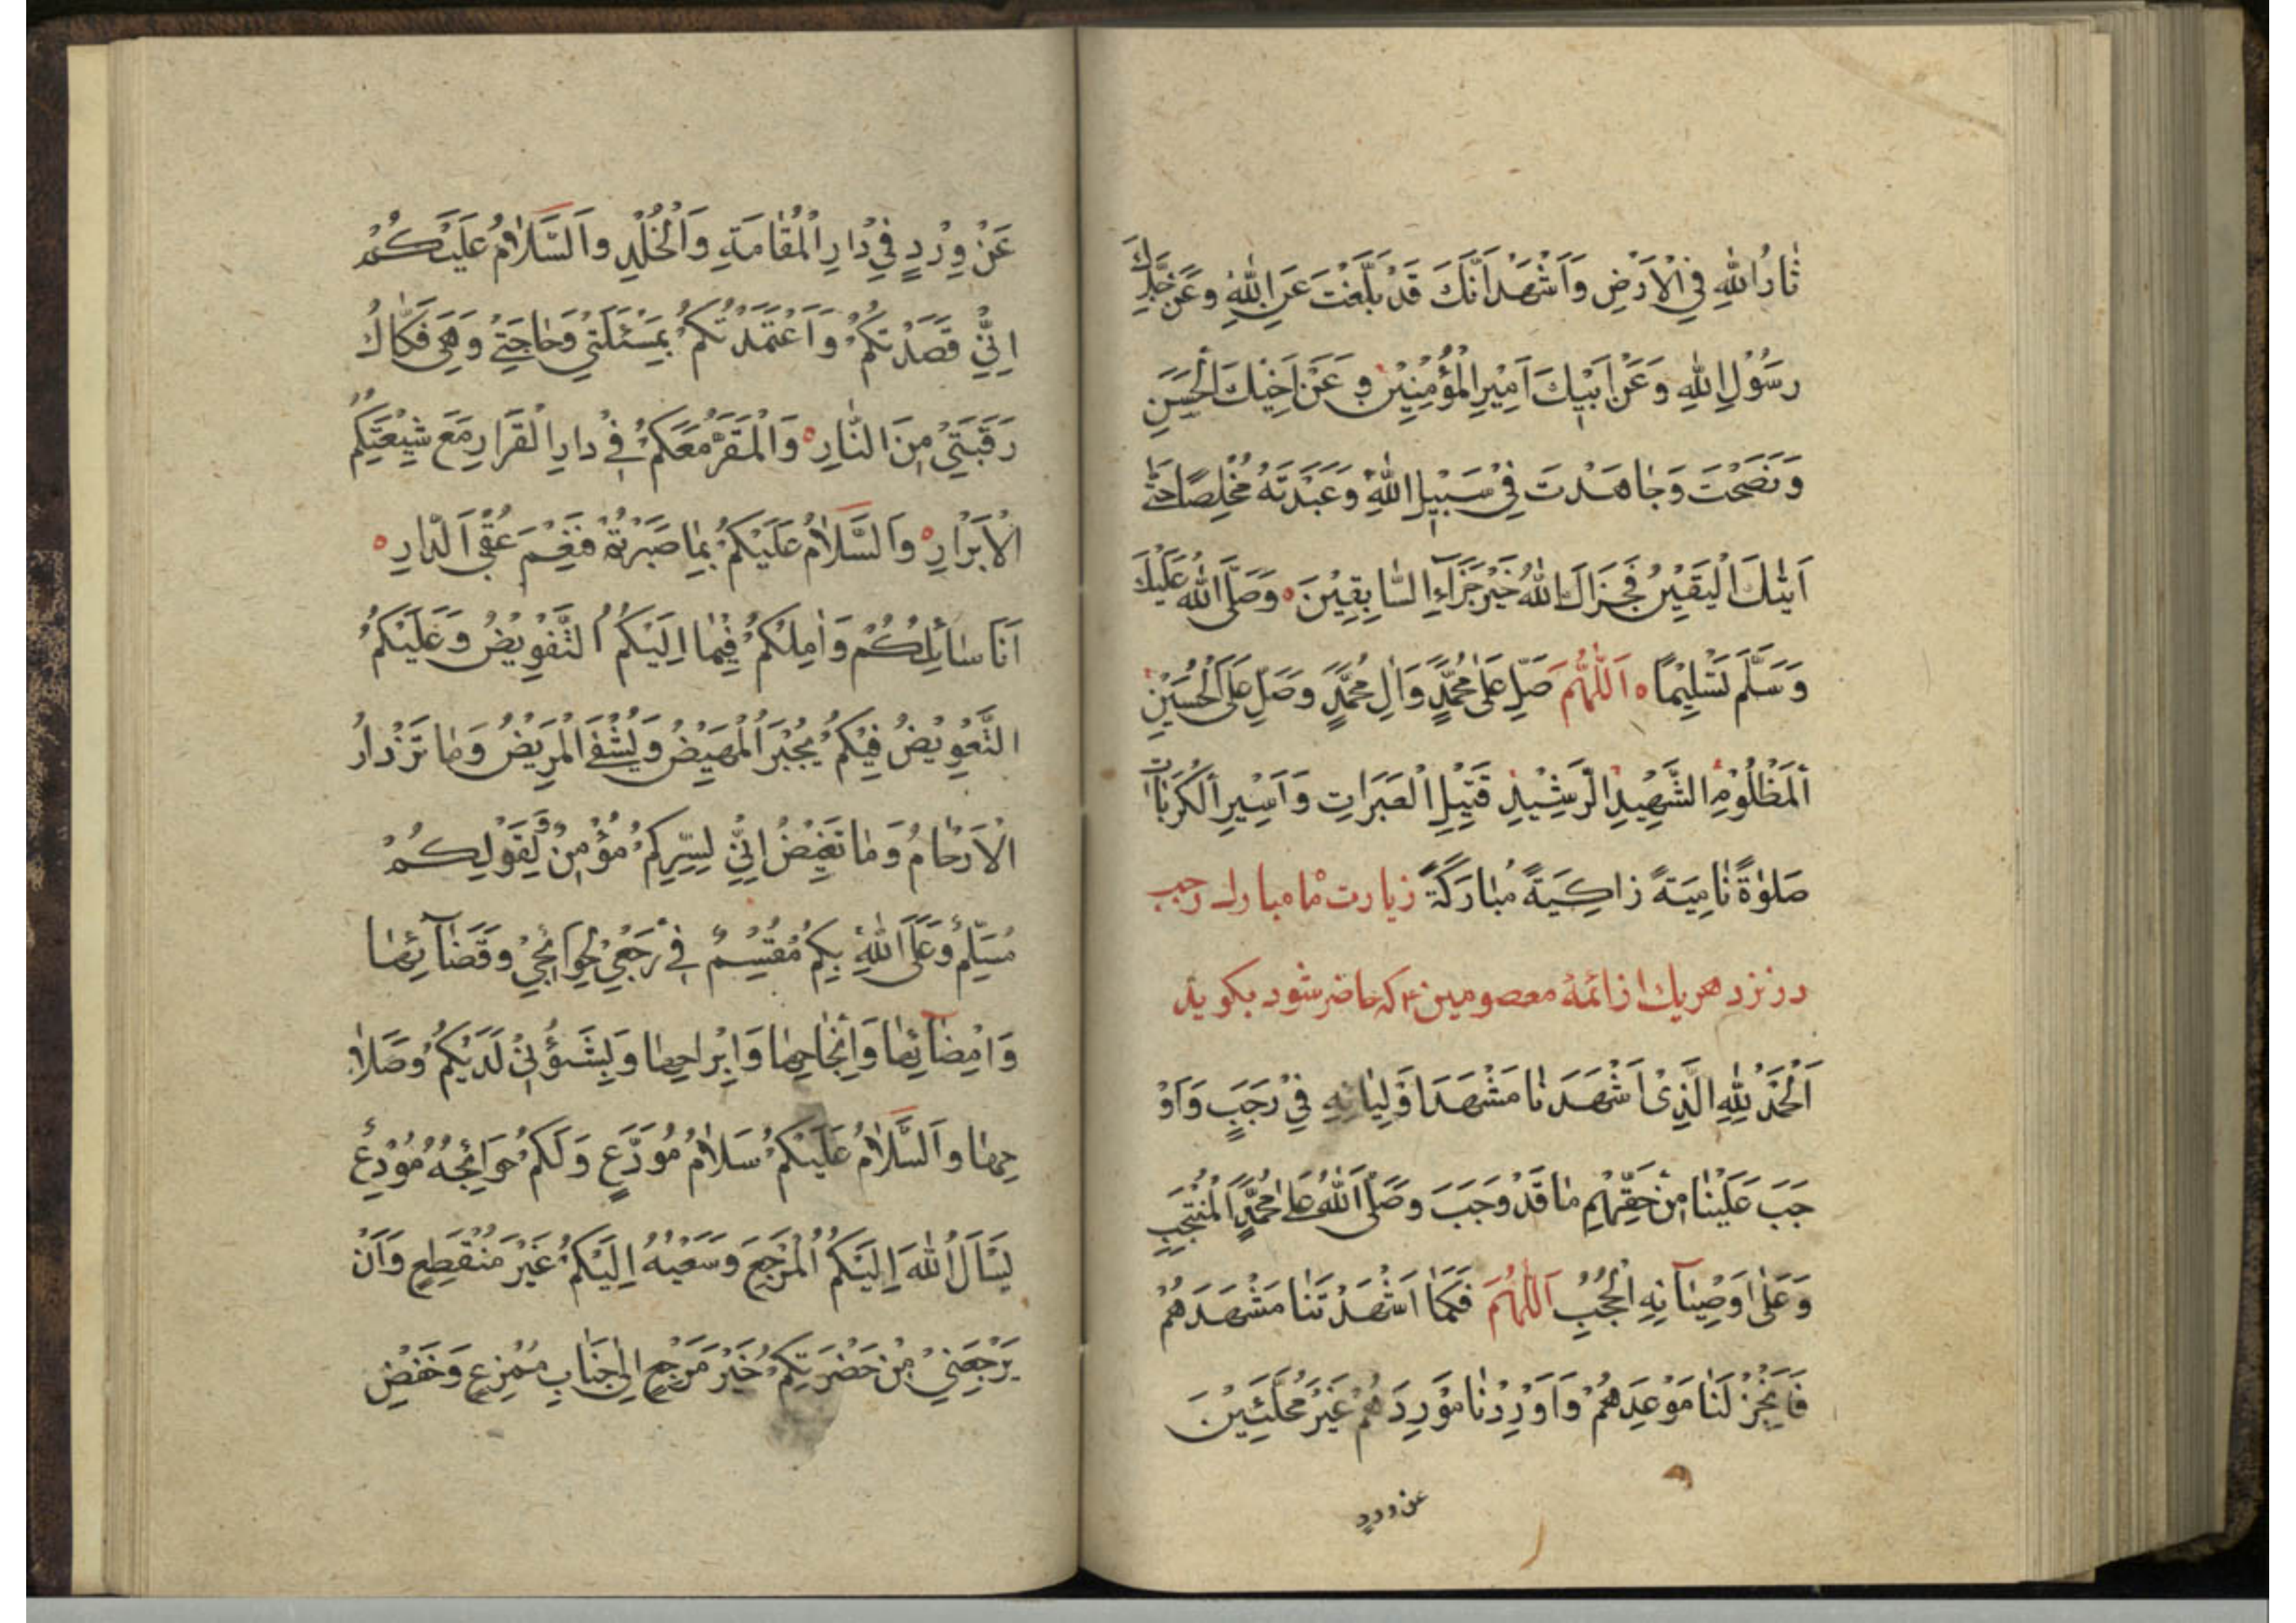 ثَارُ اللهِ فِي الْاَرْضِ وَاَشْهَدُ اَنَّكَ قَدْ بَلَّغْتَ عَنِ اللهِ وَعَنْ جَدِّكَ
رَسُوْلِ اللهِ وَعَنْ اَبِيْكَ اَمِيْرِ الْمُؤْمِنِيْنَ وَعَنْ اَخِيْكَ الْحَسَنِ
وَنَصَحْتَ وَجَاهَدْتَ فِيْ سَبِيْلِ اللهِ وَعَبَدْتَهُ مُخْلِصًا حَتّٰى
اَتٰىكَ الْيَقِيْنُ فَجَزَاكَ اللهُ خَيْرَ جَزَآءِ السَّابِقِيْنَ ه وَصَلَّى اللهُ عَلَيْكَ
وَسَلَّمَ تَسْلِيْمًا ه اَللّٰهُمَّ صَلِّ عَلٰى مُحَمَّدٍ وَاٰلِ مُحَمَّدٍ وَصَلِّ عَلَى الْحُسَيْنِ
الْمَظْلُوْمِ الشَّهِيْدِ الرَّشِيْدِ قَتِيْلِ الْعَبَرَاتِ وَاَسِيْرِ الْكُرُبَاتِ
صَلٰوةً نَامِيَةً زَاكِيَةً مُبَارَكَةً زيارت ماه مبارك رجب
در نزد هريك از ائمهٔ معصومين ع كه حاضر شود بكويد
اَلْحَمْدُ لِلّٰهِ الَّذِيْ اَشْهَدَنَا مَشْهَدَ اَوْلِيَائِهِ فِيْ رَجَبٍ وَاَوْ
جَبَ عَلَيْنَا مِنْ حَقِّهِمْ مَا قَدْ وَجَبَ وَصَلَّى اللهُ عَلٰى مُحَمَّدٍ الْمُنْتَجَبِ
وَعَلٰى اَوْصِيَآئِهِ الْحُجُبِ اَللّٰهُمَّ فَكَمَا اَشْهَدْتَنَا مَشْهَدَهُمْ
فَاَنْجِزْ لَنَا مَوْعِدَهُمْ وَاَوْرِدْنَا مَوْرِدَهُمْ غَيْرَ مُحَلَّئِيْنَ
عن ورد
عَنْ وِرْدٍ فِيْ دَارِ الْمُقَامَةِ وَالْخُلْدِ وَالسَّلَامُ عَلَيْكُمْ
اِنِّيْ قَصَدْتُكُمْ وَاَعْتَمَدْتُكُمْ بِمَسْئَلَتِيْ وَحَاجَتِيْ وَهِيَ فَكَاكُ
رَقَبَتِيْ مِنَ النَّارِ ه وَالْمَقَرُّ مَعَكُمْ فِيْ دَارِ الْقَرَارِ مَعَ شِيْعَتِكُمُ
الْاَبْرَارِ ه وَالسَّلَامُ عَلَيْكُمْ بِمَا صَبَرْتُمْ فَنِعْمَ عُقْبَى الدَّارِ ه
اَنَا سَائِلُكُمْ وَاٰمِلُكُمْ فِيْمَا اِلَيْكُمُ التَّفْوِيْضُ وَعَلَيْكُمُ
التَّعْوِيْضُ فِيْكُمْ يُجْبَرُ الْمَهِيْضُ وَيُشْفَى الْمَرِيْضُ وَمَا تَزْدَادُ
الْاَرْحَامُ وَمَا تَغِيْضُ اِنِّيْ لِسِرِّكُمْ مُؤْمِنٌ وَلِقَوْلِكُمْ
مُسَلِّمٌ وَعَلَى اللهِ بِكُمْ مُقْسِمٌ فِيْ رَجْعِيْ بِحَوَائِجِيْ وَقَضَآئِهَا
وَاِمْضَآئِهَا وَاِنْجَاحِهَا وَاِبْرَاحِهَا وَبِشُؤُنِيْ لَدَيْكُمْ وَصَلَا
حِهَا وَالسَّلَامُ عَلَيْكُمْ سَلَامُ مُوَدِّعٍ وَلَكُمْ حَوَائِجَهُ مُوْدِعٌ
يَسْاَلُ اللهَ اِلَيْكُمُ الْمَرْجِعَ وَسَعْيُهُ اِلَيْكُمْ غَيْرُ مُنْقَطِعٍ وَاَنْ
يَرْجِعَنِيْ مِنْ حَضْرَتِكُمْ خَيْرَ مَرْجِعٍ اِلٰى جَنَابٍ مُمْرِعٍ وَخَفْضٍ